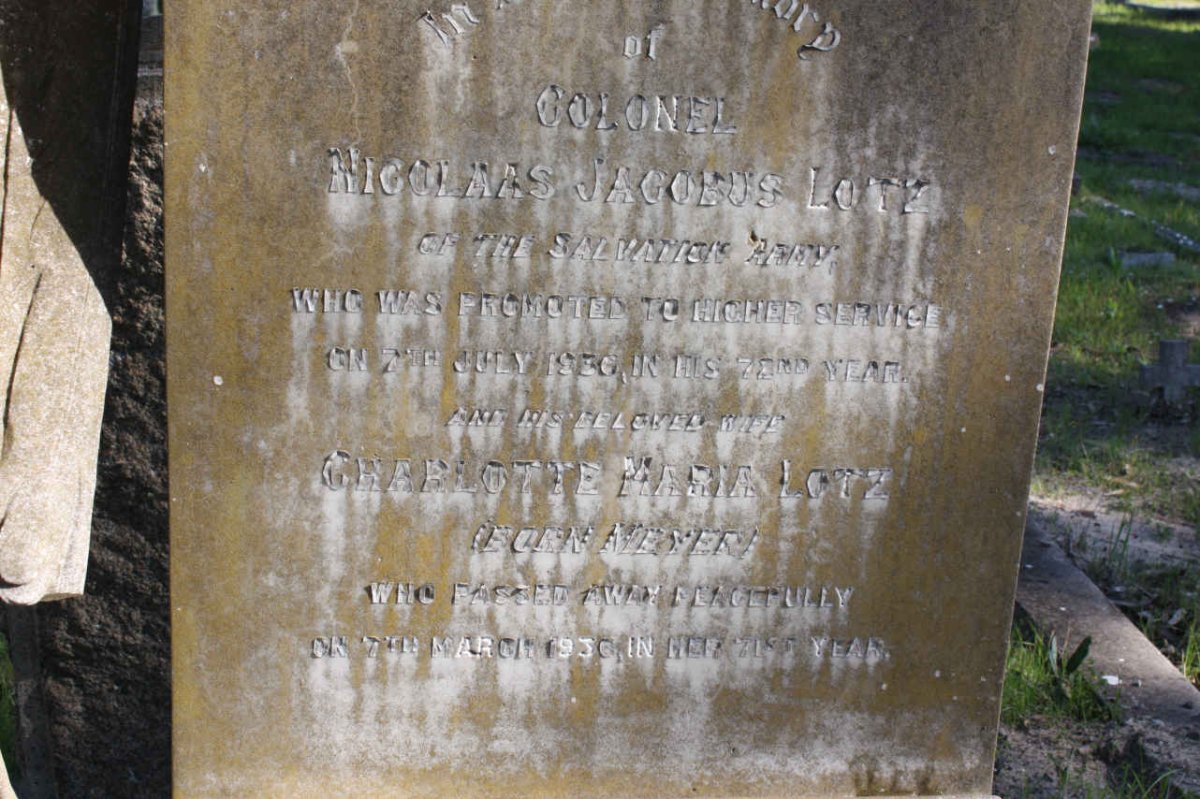 In
of
COLONEL
NICOLAAS JACOBUS LOTZ
OF THE SALVATION ARMY,
WHO WAS PROMOTED TO HIGHER SERVICE
ON 7TH JULY 1936, IN HIS 72ND YEAR.
AND HIS BELOVED WIFE
CHARLOTTE MARIA LOTZ
(BORN MEYER)
WHO PASSED AWAY PEACEFULLY
ON 7TH MARCH 1936, IN HER 71ST YEAR.